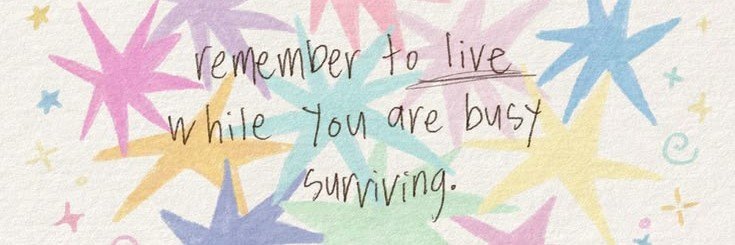 remember to live
while you are busy
surviving.